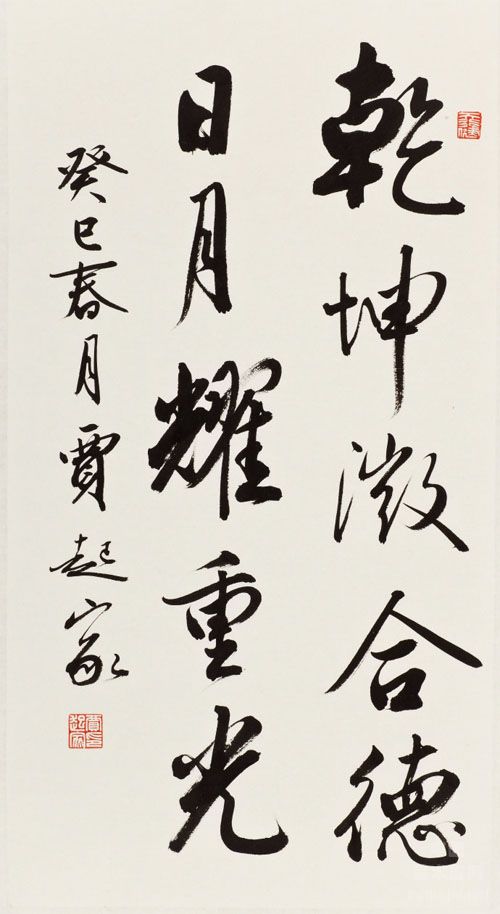 乾坤徵合德
日月耀重光
癸巳春月賈起家